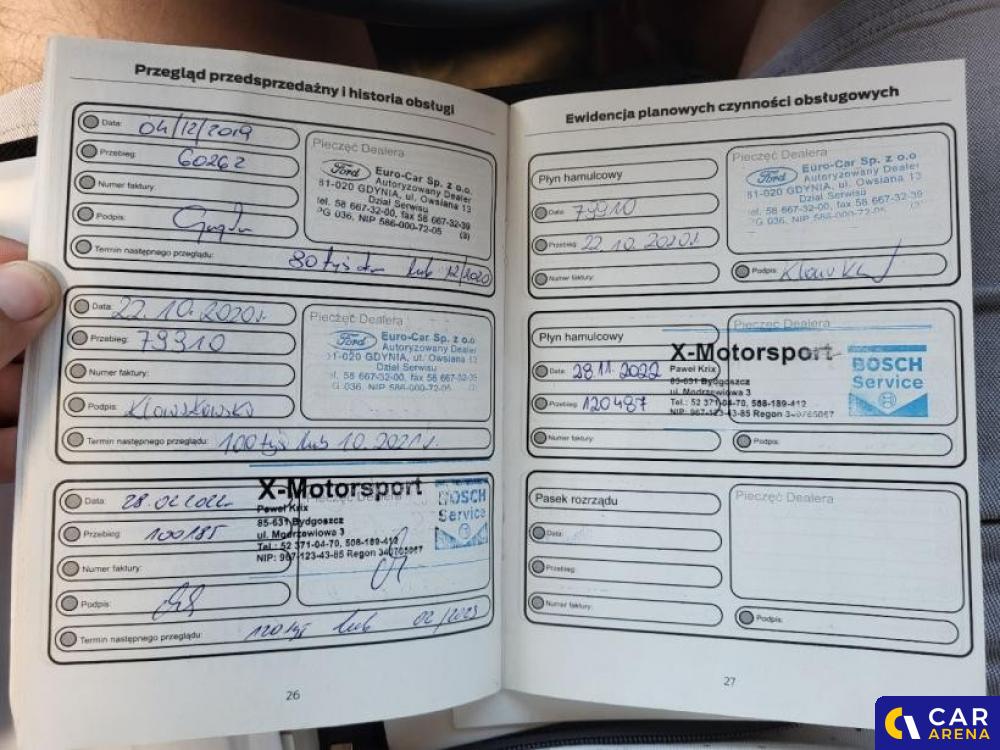 Przegląd przedsprzedażny i historia obsługi
Data: 04/12/2019
Przebieg: 60262
Numer faktury:
Podpis:
Termin następnego przeglądu: 80 tyś km lub 12/2020
Pieczęć Dealera
Ford
Euro-Car Sp. z o.o.
Autoryzowany Dealer
81-020 GDYNIA, ul. Owsiana 13
Dział Serwisu
tel. 58 667-32-00, fax 58 667-32-39
PG 036, NIP 586-000-72-05 (3)
Data: 22.10.2020r.
Przebieg: 79910
Numer faktury:
Podpis:
Termin następnego przeglądu: 100 tyś lub 10.2021r.
Pieczęć Dealera
Ford
Euro-Car Sp. z o.o.
Autoryzowany Dealer
1-020 GDYNIA, ul. Owsiana 13
Dział Serwisu
l. 58 667-32-00, fax 58 667-32-39
G 036, NIP 586-000-72-05
Data: 28.02.2022
Przebieg: 100185
Numer faktury:
Podpis:
Termin następnego przeglądu: 120 tyś lub 02/2023
Pieczęć Dealera
X-Motorsport
Paweł Krix
85-631 Bydgoszcz
ul. Modrzewiowa 3
Tel.: 52 371-04-70, 508-189-412
NIP: 967-123-43-85 Regon 340765067
BOSCH
Service
26
Ewidencja planowych czynności obsługowych
Płyn hamulcowy
Data: 79910
Przebieg: 22.10.2020r.
Numer faktury:
Pieczęć Dealera
Ford
Euro-Car Sp. z o.o.
Autoryzowany Dealer
81-020 GDYNIA, ul. Owsiana 13
Dział Serwisu
tel. 58 667-32-00, fax 58 667-32-39
PG 036, NIP 586-000-72-05
Podpis:
Płyn hamulcowy
Data: 28.11.2022
Przebieg: 120487
Numer faktury:
Pieczęć Dealera
X-Motorsport
Paweł Krix
85-631 Bydgoszcz
ul. Modrzewiowa 3
Tel.: 52 371-04-70, 508-189-412
NIP: 967-123-43-85 Regon 340765067
BOSCH
Service
Podpis:
Pasek rozrządu
Data:
Przebieg:
Numer faktury:
Pieczęć Dealera
Podpis:
27
CAR
ARENA